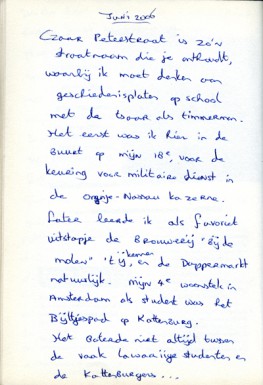 Juni 2006
Czaar Peterstraat is zo'n
straatnaam die je onthoudt,
waarbij ik moet denken aan
geschiedenisplaten op school
met de tsaar als timmerman.
Het eerst was ik hier in de
buurt op mijn 18e, voor de
keuring voor militaire dienst in
de Oranje-Nassau kazerne.
Later leerde ik als favoriet
uitstapje de Brouwerij "Bij de
molen" 't ij kennen, en de Dappermarkt
natuurlijk. Mijn 4e woonstek in
Amsterdam als student was het
Bijltjespad op Kattenburg.
Het boterde niet altijd tussen
de vaak lawaaiige studenten en
de Kattenburgers...